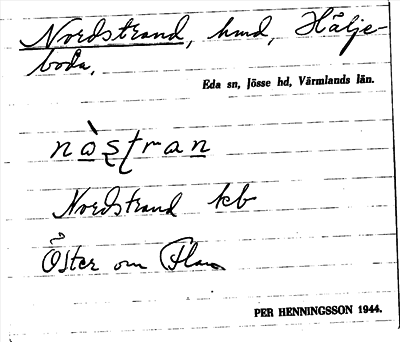 Nordstrand, hmd, Hälje-
boda.
Eda sn, Jösse hd, Värmlands län.
nòstran
Nordstrand kb
Öster om Flan
PER HENNINGSSON 1944.